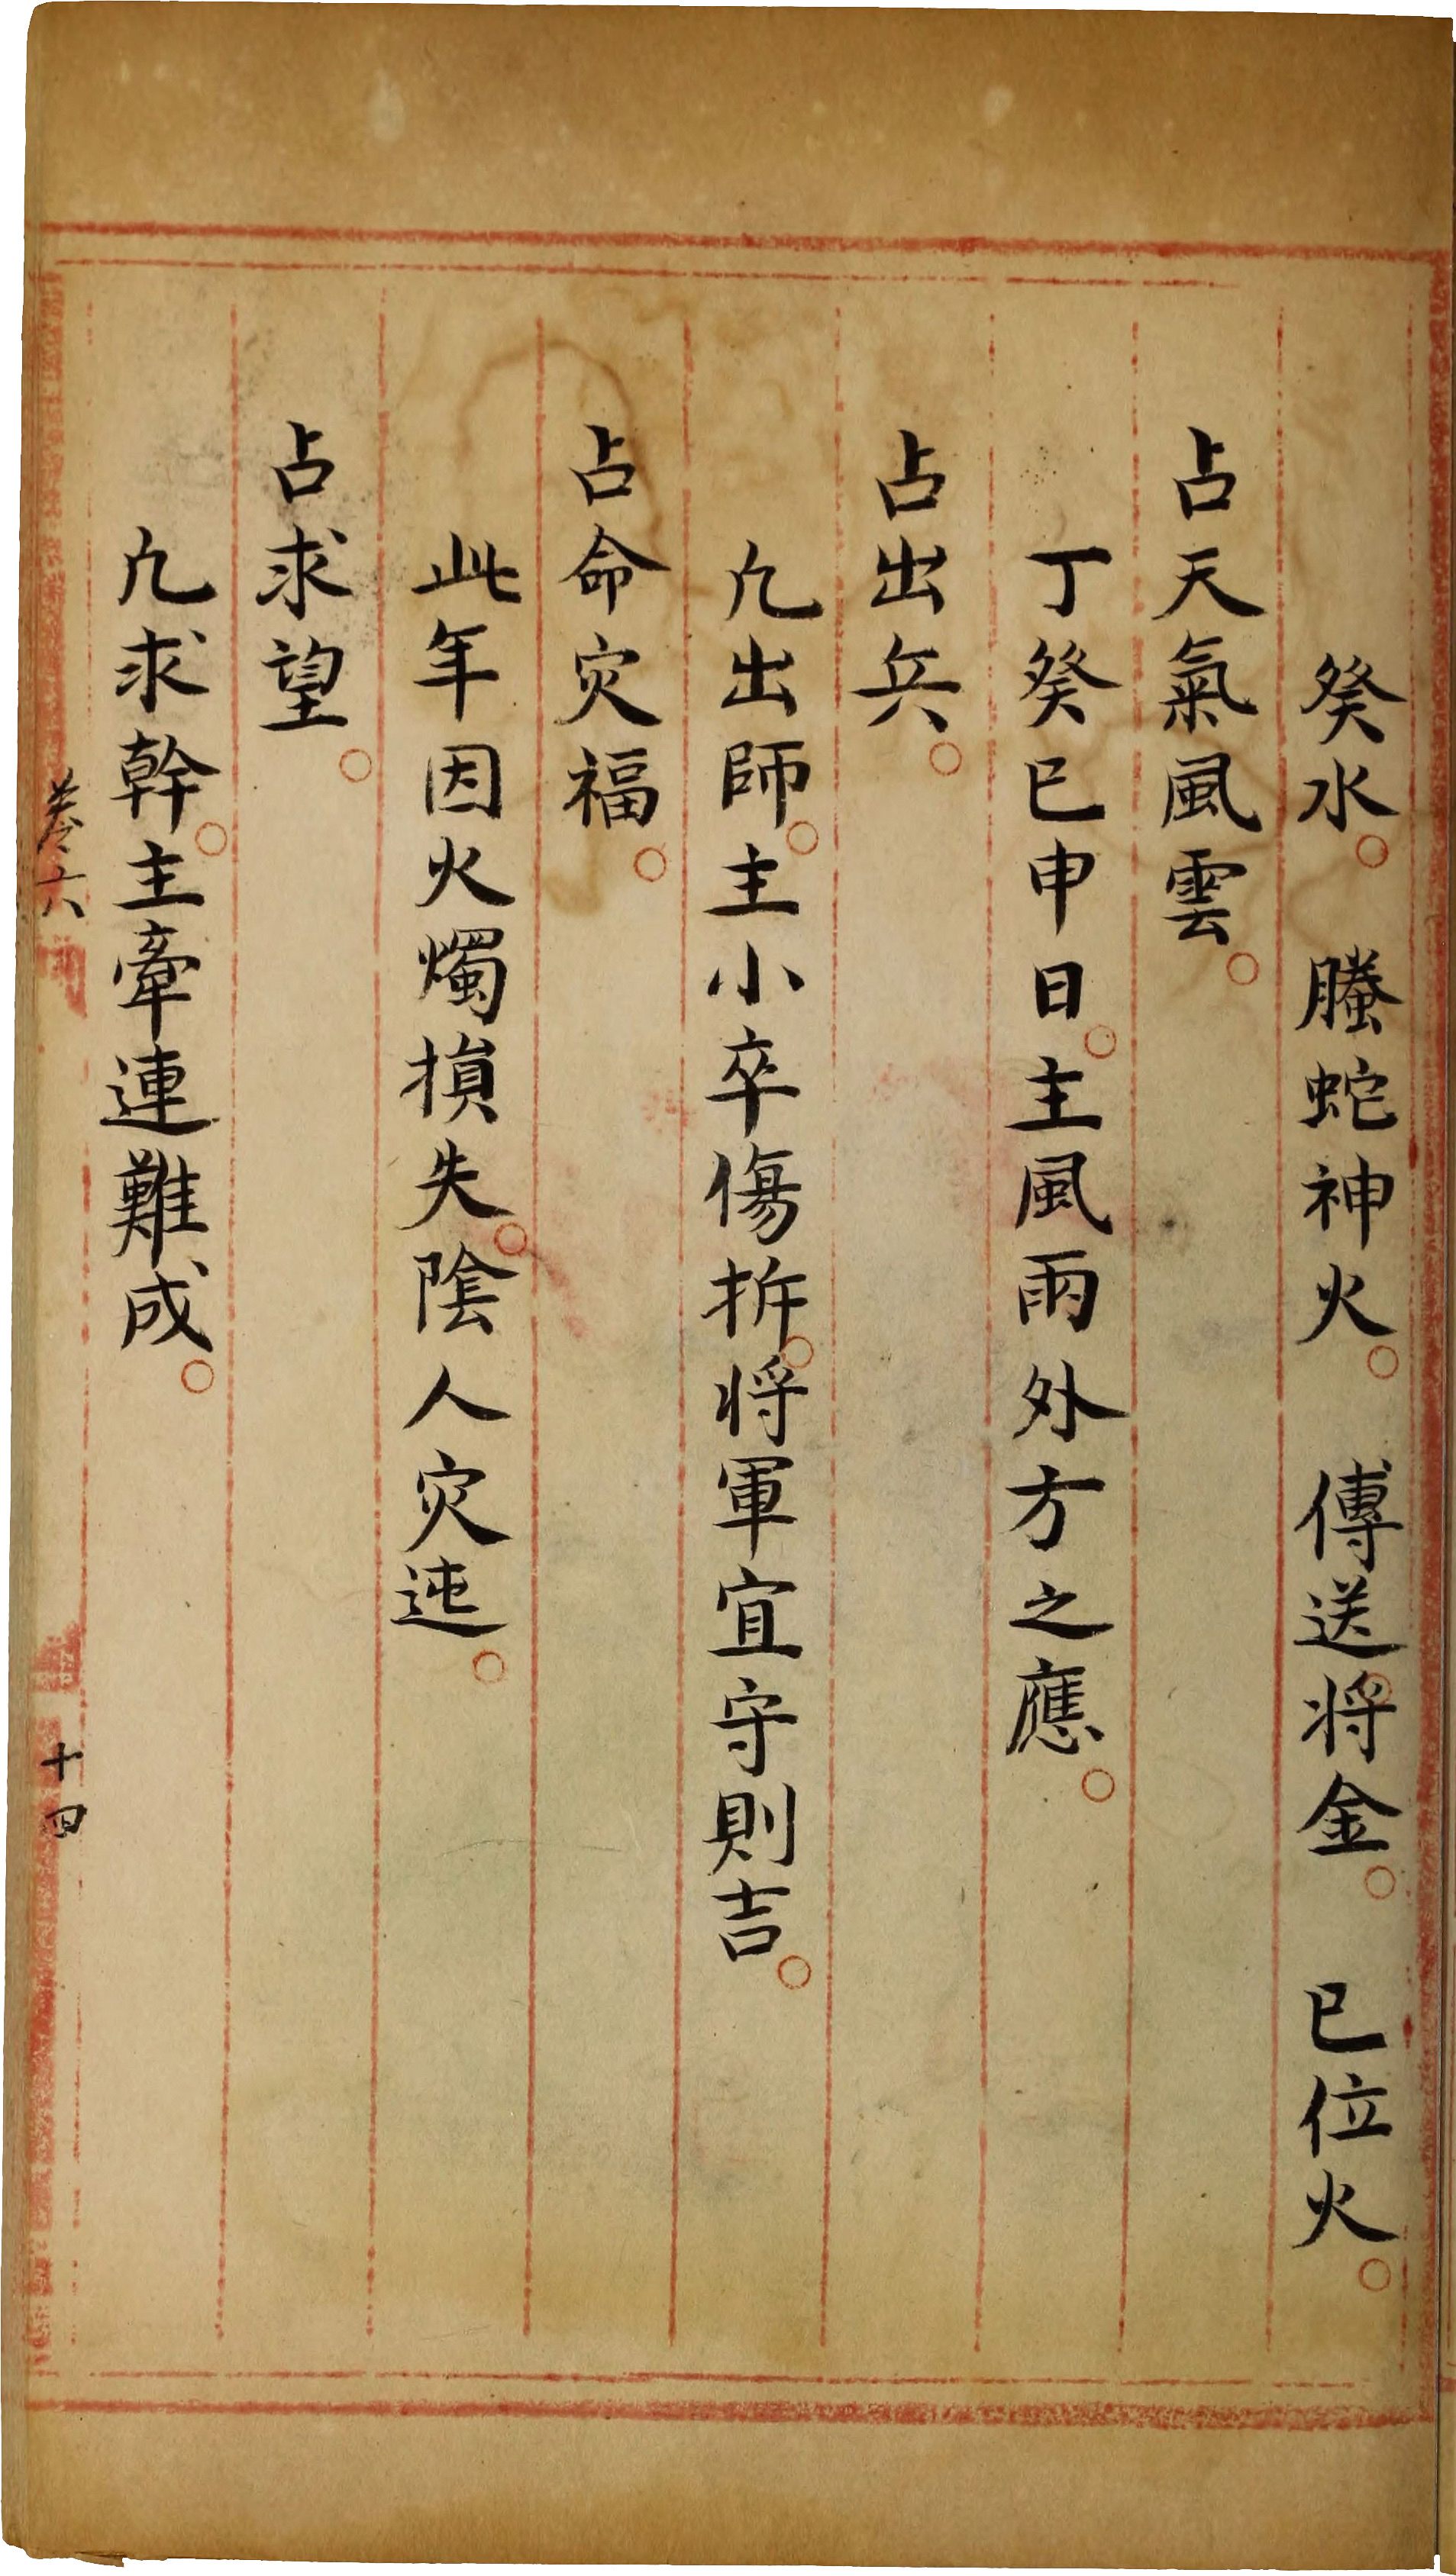 癸水。　螣蛇神火。　傳送將金。　巳位火。
占天氣風雲。
丁癸巳申日。主風雨外方之應。
占出兵。
凢出師。主小卒傷折。將軍宜守則吉。
占命灾福。
此年因火燭損失。陰人灾迍。
占求望。
凢求幹。主牽連難成。
卷六
十四